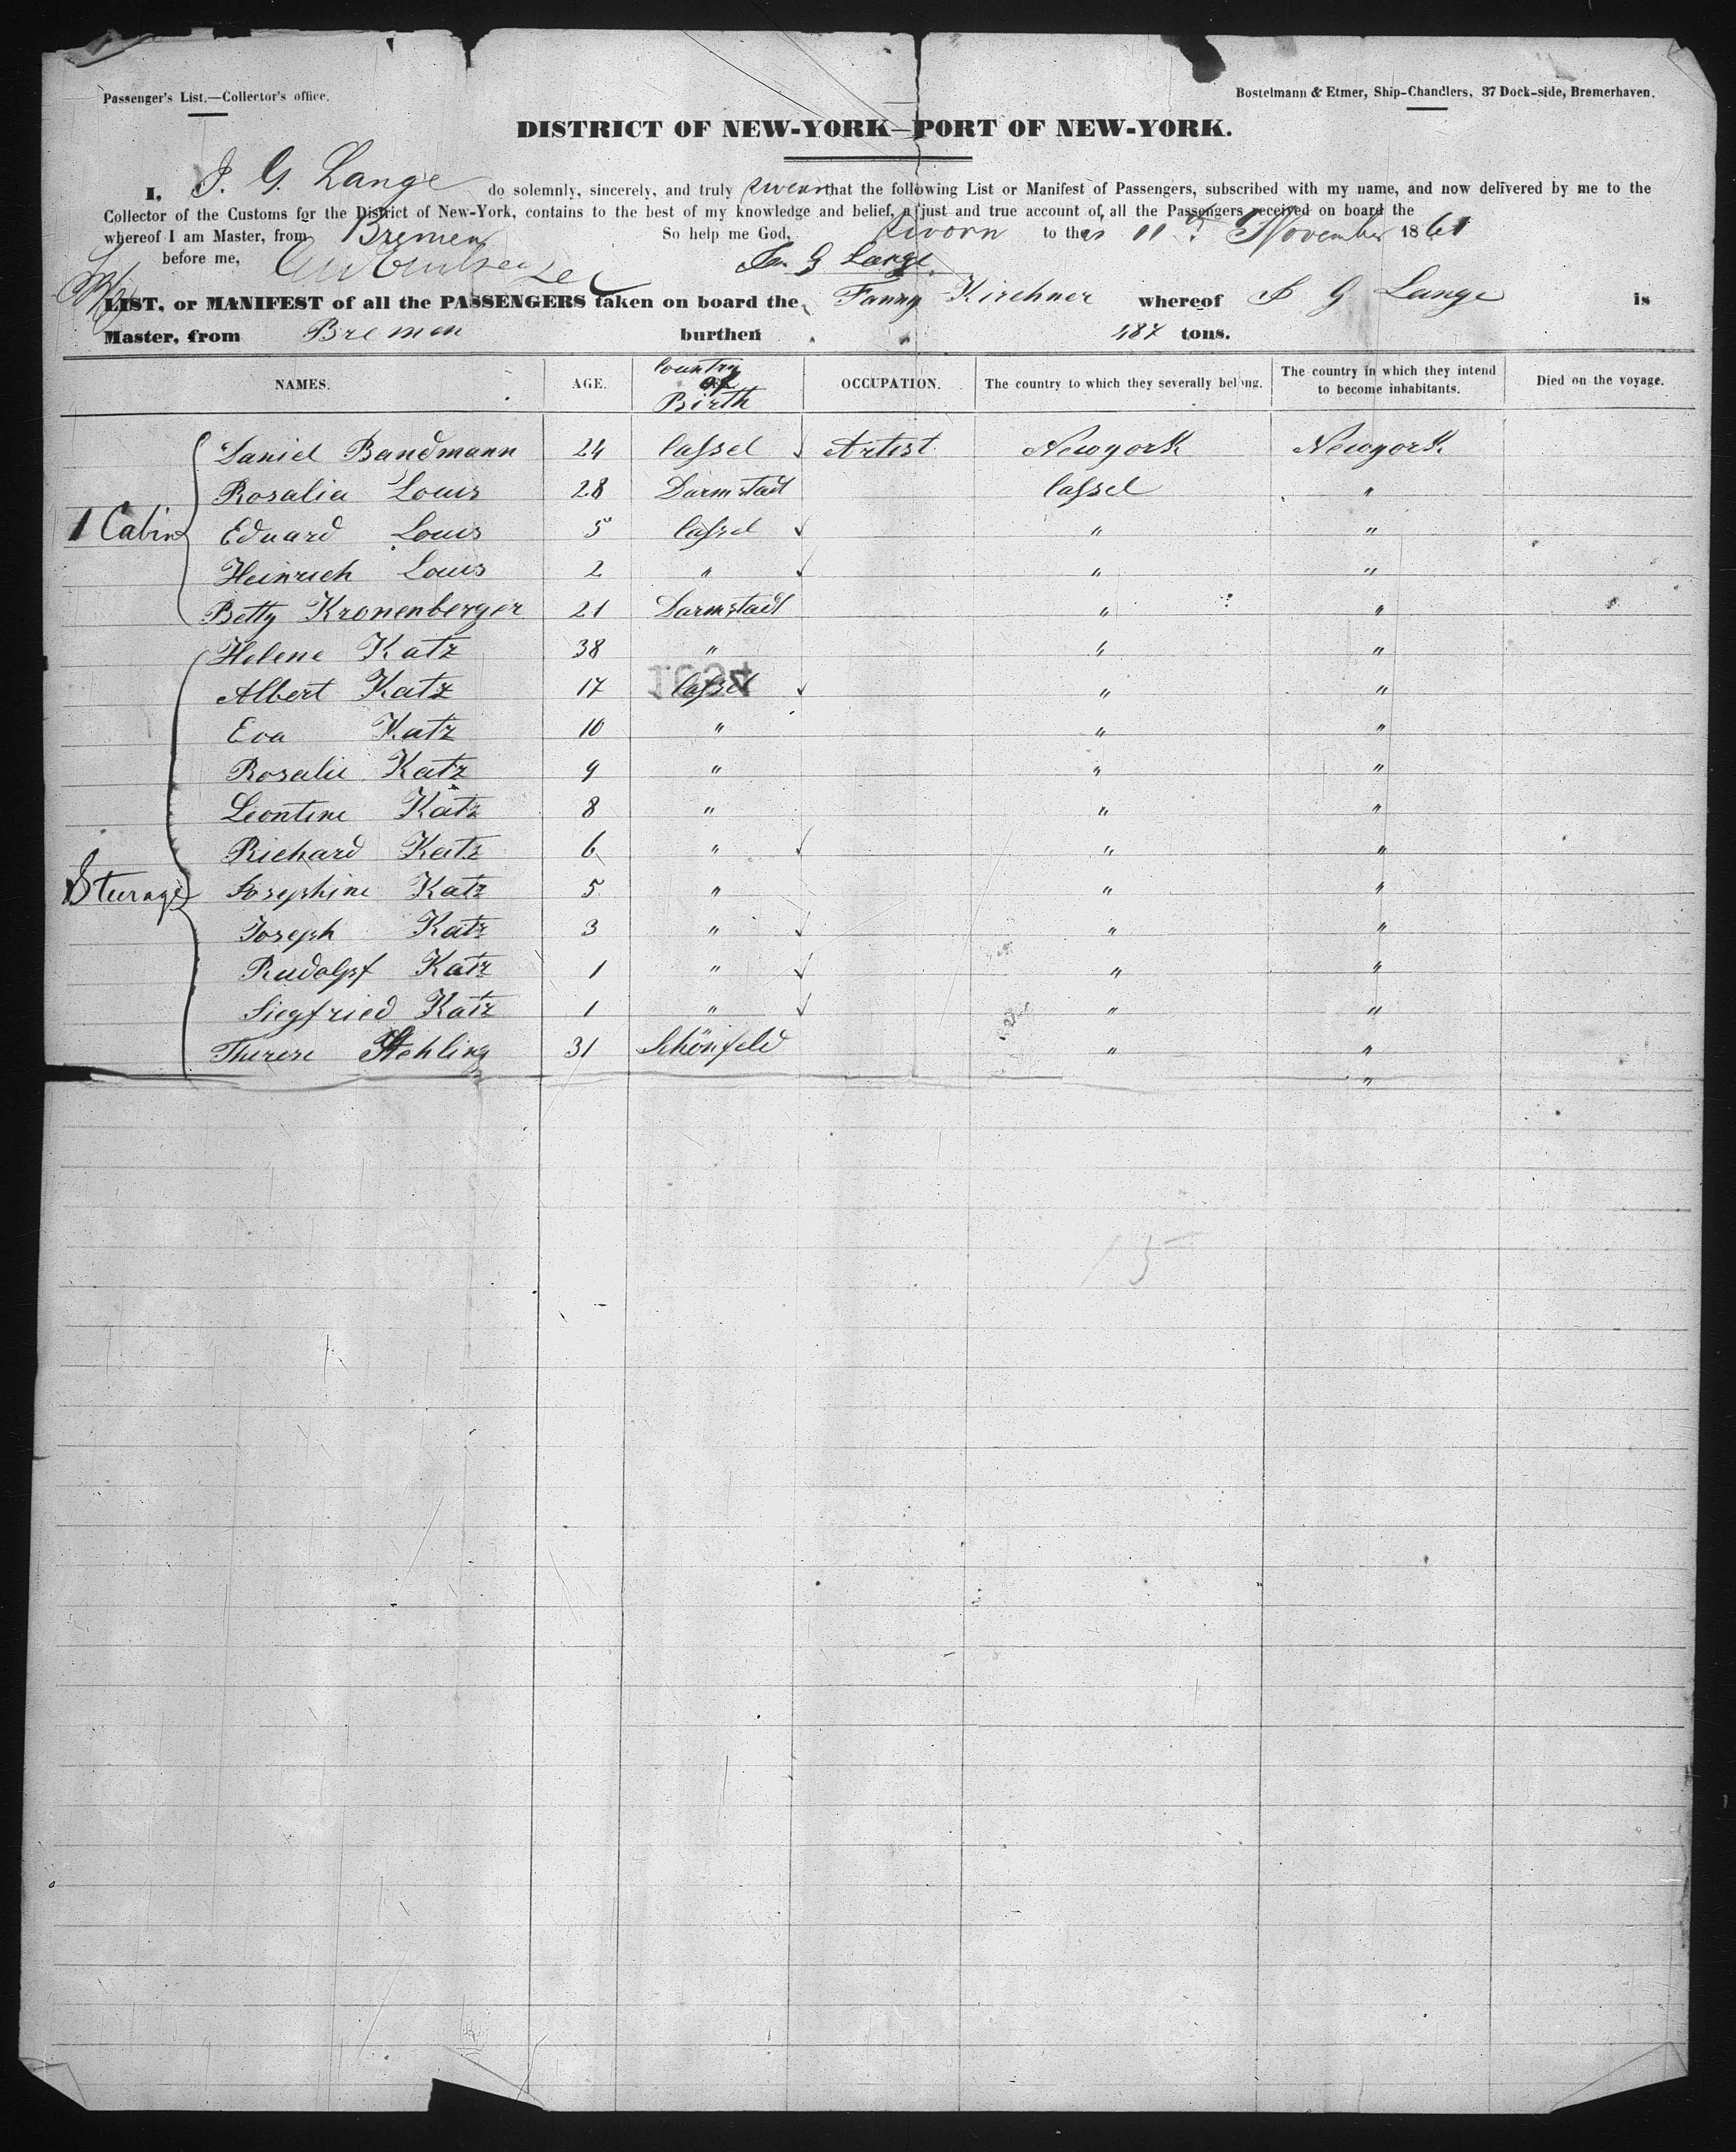 Passenger's List.—Collector's office.
Bostelmann & Etmer, Ship-Chandlers, 37 Dock-side, Bremerhaven.
DISTRICT OF NEW-YORK—PORT OF NEW-YORK.
I, J. G. Lange do solemnly, sincerely, and truly swear that the following List or Manifest of Passengers, subscribed with my name, and now delivered by me to the
Collector of the Customs for the District of New-York, contains to the best of my knowledge and belief, a just and true account of all the Passengers received on board the
whereof I am Master, from Bremen So help me God, Sworn to this 11th November 1861
before me, J. G Lange
LIST, or MANIFEST of all the PASSENGERS taken on board the Fanny Kirchner whereof J G Lange is
Master, from Bremen burthen 487 tons.
NAMES. AGE. Country of Birth OCCUPATION. The country to which they severally belong. The country in which they intend to become inhabitants. Died on the voyage.
Daniel Bandmann 24 Cassel Artist Newyork Newyork
Rosalia Louis 28 Darmstadt Cassel "
1 Cabin Eduard Louis 5 Cassel " "
Heinrich Louis 2 " " "
Betty Kronenberger 21 Darmstadt " "
Helene Katz 38 " " "
Albert Katz 17 Cassel " "
Eva Katz 10 " " "
Rosalie Katz 9 " " "
Leontine Katz 8 " " "
Richard Katz 6 " " "
Steerage Josephine Katz 5 " " "
Joseph Katz 3 " " "
Rudolpf Katz 1 " " "
Siegfried Katz 1 " " "
Therese Stehling 31 Schönfeld " "
"
15